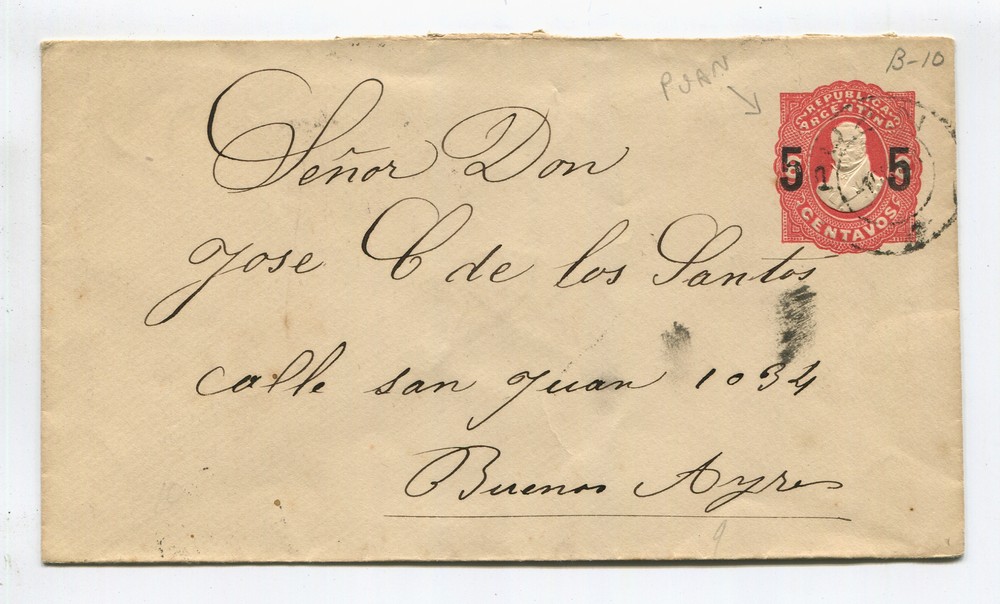 B-10
PUAN
REPUBLICA
ARGENTINA
5 5
CENTAVOS
Señor Don
Jose C de los Santos
calle san Juan 1034
Buenos Ayres